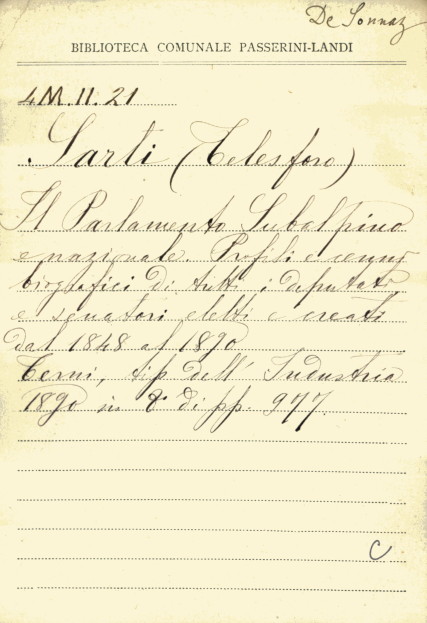 De Sonnaz
BIBLIOTECA COMUNALE PASSERINI-LANDI
4M.II.21
Sarti (Telesforo)
Il Parlamento Subalpino
e nazionale. Profili e cenni
biografici di tutti i deputati
e senatori eletti e creati
dal 1848 al 1890
Terni, tip. dell' Industria
1890 in 8° di pp. 977.
C